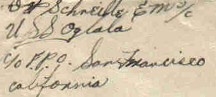 Schneible EM 3/c
U.S.S Oglala
c/o P.P.O. San Francisco
California